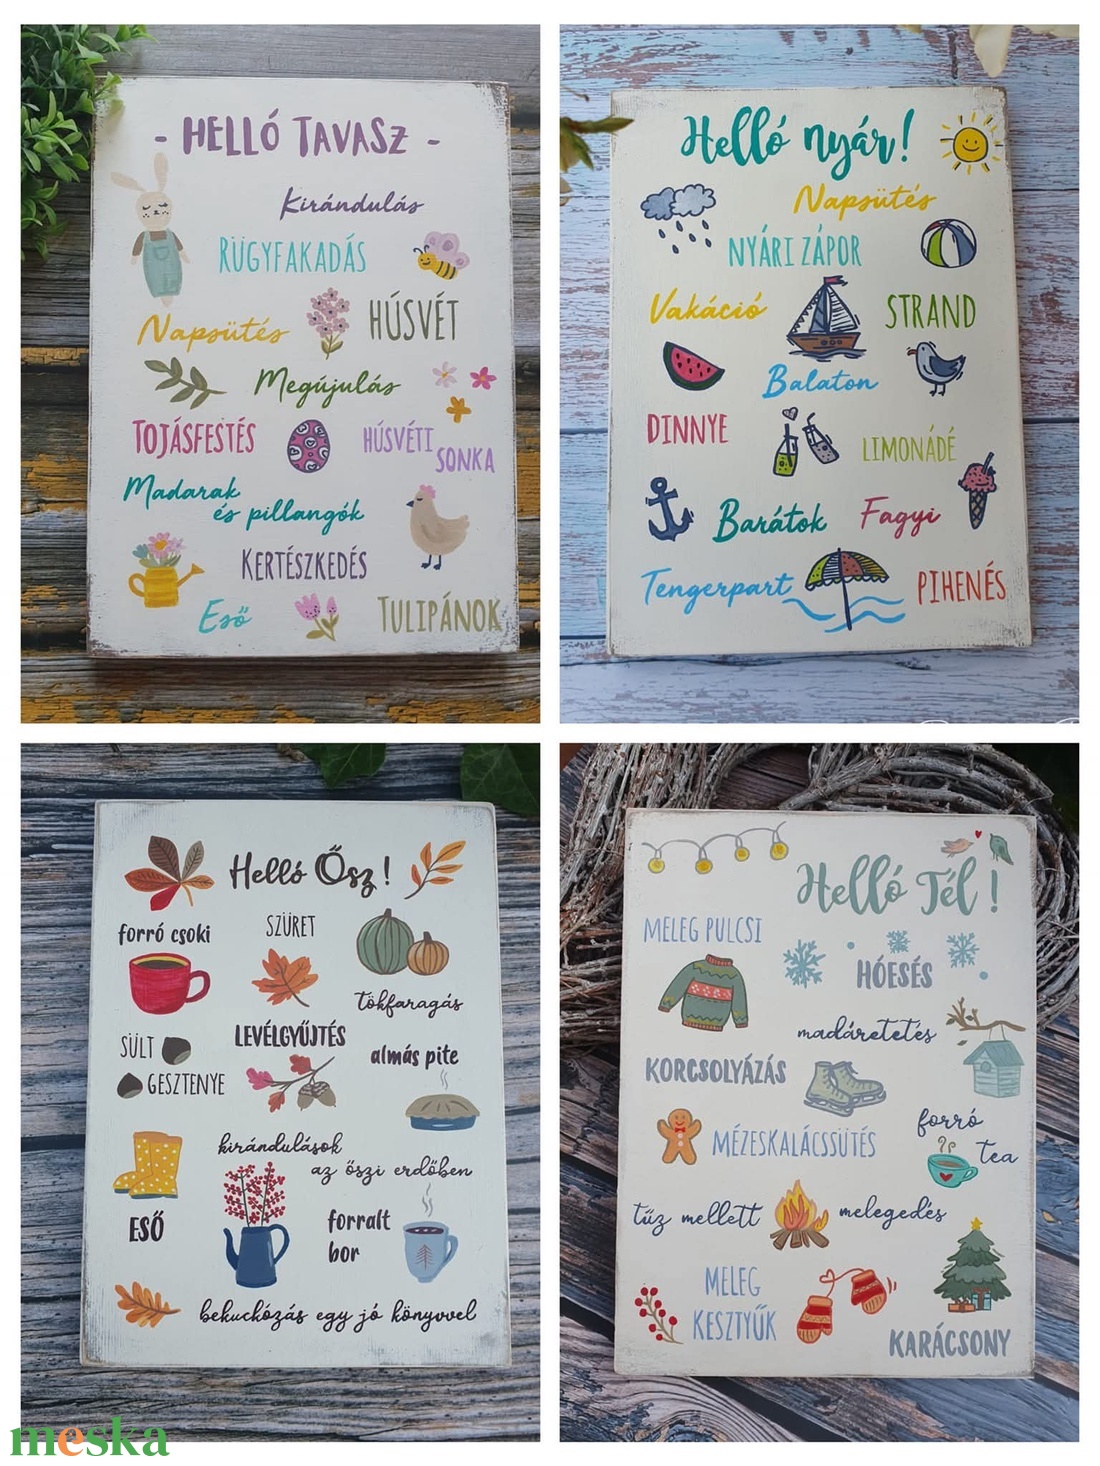 - HELLÓ TAVASZ -
Kirándulás
RÜGYFAKADÁS
Napsütés
HÚSVÉT
Megújulás
TOJÁSFESTÉS
HÚSVÉTI
SONKA
Madarak
és pillangók
KERTÉSZKEDÉS
Eső
TULIPÁNOK
Helló nyár!
Napsütés
NYÁRI ZÁPOR
Vakáció
STRAND
Balaton
DINNYE
LIMONÁDÉ
Barátok
Fagyi
Tengerpart
PIHENÉS
Helló Ősz!
forró csoki
SZÜRET
tökfaragás
LEVÉLGYŰJTÉS
SÜLT
GESZTENYE
almás pite
kirándulások
az őszi erdőben
ESŐ
forralt
bor
bekuckózás egy jó könyvvel
Helló Tél!
MELEG PULCSI
HÓESÉS
madáretetés
KORCSOLYÁZÁS
forró
tea
MÉZESKALÁCSSÜTÉS
tűz mellett
melegedés
MELEG
KESZTYŰK
KARÁCSONY
meska